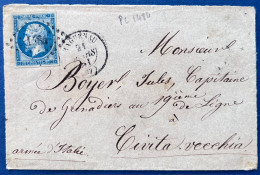 PC 1484
21
Monsieur
Boyer, Jules, Capitaine
de Grenadiers au 19ème
de Ligne
à
Civita-vecchia
armée d'Italie